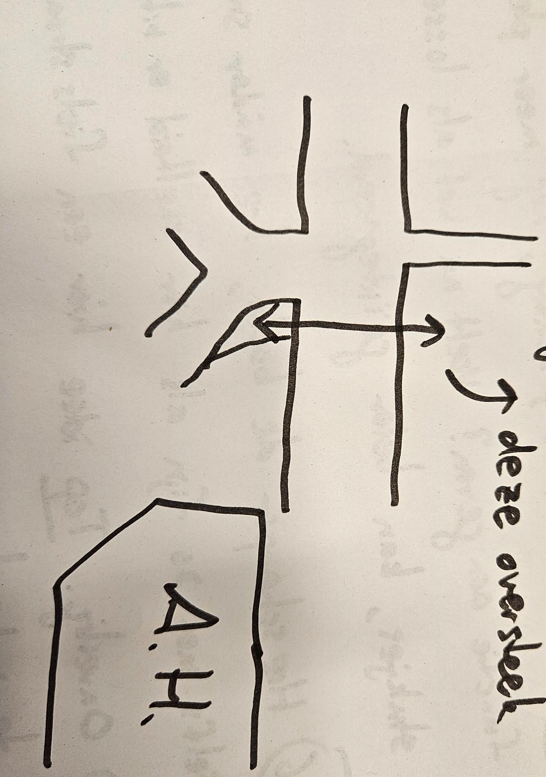 deze oversteek
A.H.